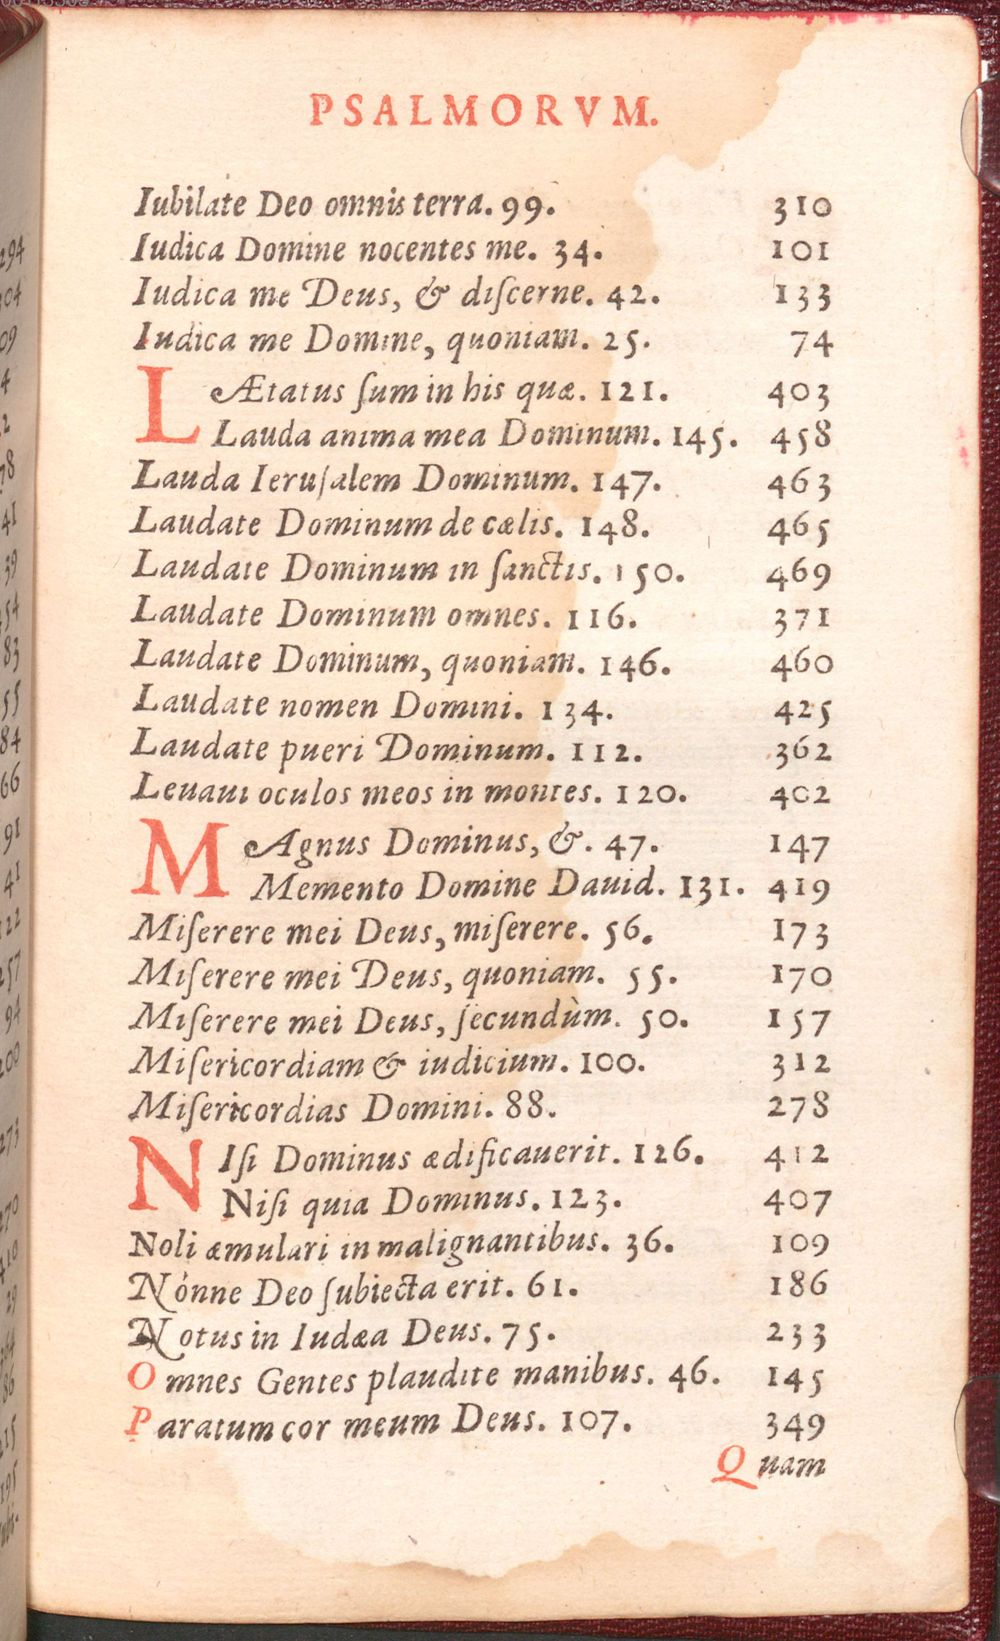 PSALMORVM.
Iubilate Deo omnis terra. 99. 310
Iudica Domine nocentes me. 34. 101
Iudica me Deus, & diſcerne. 42. 133
Iudica me Domine, quoniam. 25. 74
LÆtatus ſum in his quæ. 121. 403
Lauda anima mea Dominum. 145. 458
Lauda Ieruſalem Dominum. 147. 463
Laudate Dominum de cælis. 148. 465
Laudate Dominum in ſanctis. 150. 469
Laudate Dominum omnes. 116. 371
Laudate Dominum, quoniam. 146. 460
Laudate nomen Domini. 134. 425
Laudate pueri Dominum. 112. 362
Leuaui oculos meos in montes. 120. 402
MAgnus Dominus, &. 47. 147
Memento Domine Dauid. 131. 419
Miſerere mei Deus, miſerere. 56. 173
Miſerere mei Deus, quoniam. 55. 170
Miſerere mei Deus, ſecundùm. 50. 157
Miſericordiam & iudicium. 100. 312
Miſericordias Domini. 88. 278
NIſi Dominus ædificauerit. 126. 412
Niſi quia Dominus. 123. 407
Noli æmulari in malignantibus. 36. 109
Nónne Deo ſubiecta erit. 61. 186
Notus in Iudæa Deus. 75. 233
Omnes Gentes plaudite manibus. 46. 145
Paratum cor meum Deus. 107. 349
Quam